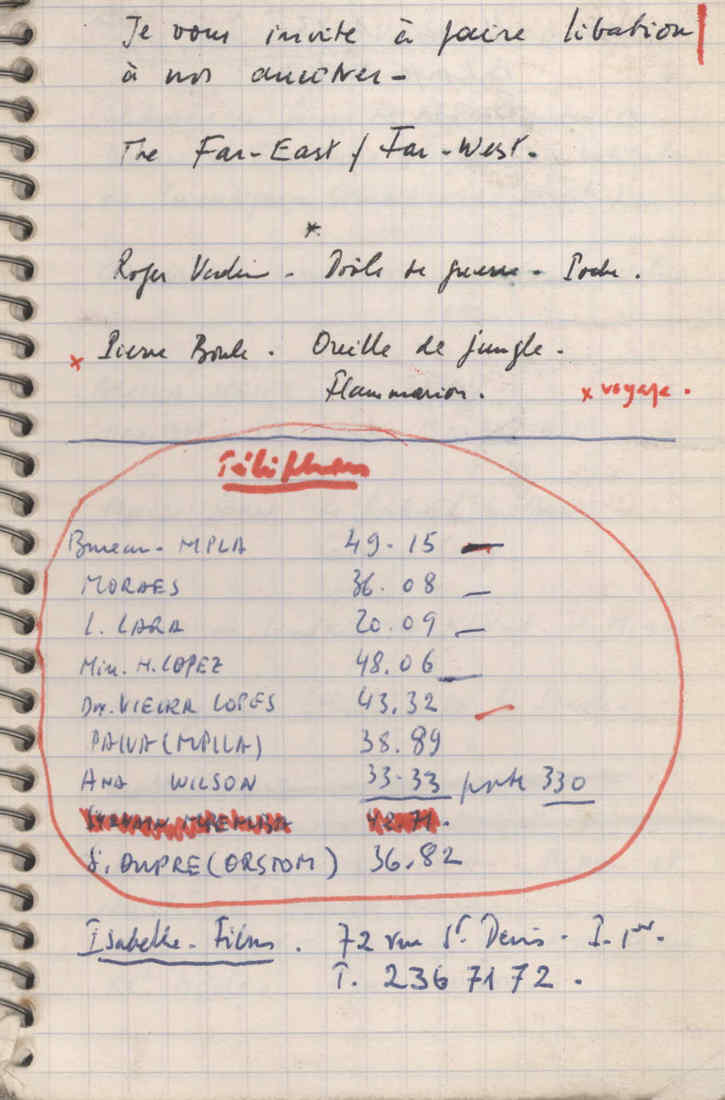 Je vous invite à faire libation
à nos ancêtres -
The Far-East / Far-West.
*
Roger - Drôle de guerre - Poche.
x Pierre Boule. Oreille de jungle.
Flammarion. x voyage.
Téléphones
Bureau - MPLA 49.15 —
MORAES 36.08 —
L. LARA 20.09 —
Min. H. LOPEZ 48.06 —
VIEIRA LOPES 43.32
PAIVA (MPLLA) 38.89
ANA WILSON 33-33 poste 330
42.71.
S. DUPRE (ORSTOM) 36.82
Isabelle - Films. 72 rue St Denis - P. 1er.
T. 236 71 72.